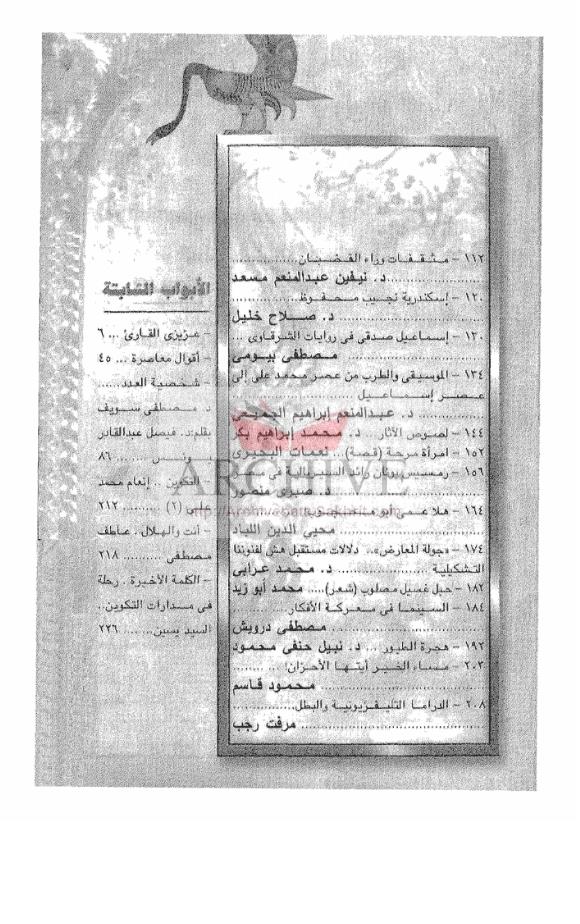 ١١٢ - مثقفات وراء القضبان..................
..........................د. نيفين عبدالمنعم مسعد
١٢٠ - إسكندرية نجيب محفوظ................
.............................. د. صلاح خليل
١٣٠ - إسماعيل صدقى فى روايات الشرقاوى ...
.............................. مصطفى بيومى
١٣٤ - الموسيقى والطرب من عصر محمد على إلى
عصر إسماعيل ......................
.................. د. عبدالمنعم إبراهيم الجميعى
١٤٤ - لصوص الآثار... د. محمد إبراهيم بكر
١٥٢ - امرأة مرحة (قصة)... نعمات البحيرى
١٥٦ - رمسيس يونان رائد السيريالية فى مصر
.................. د. صبرى منصور
١٦٤ -
.................. محيى الدين اللباد
١٧٤ - «جولة المعارض».. دلالات مستقبل هش لفنوننا
التشكيلية .................. د. محمد عرابى
١٨٢ - حبل غسيل مصلوب (شعر).... محمد أبو زيد
١٨٤ - السينما فى معركة الأفكار............
.............................. مصطفى درويش
١٩٢ - هجرة الطيور ... د. نبيل حنفى محمود
٢٠٣ - مساء الخير أيتها الأحزان! ... .......
.............................. محمود قاسم
٢٠٨ - الدراما التليفزيونية والبطل...............
.............................. مرفت رجب
الأبواب الثابتة
- عزيزى القارئ ... ٦
- أقوال معاصرة ... ٤٥
- شخصية العدد......
د. مصطفى سويف
بقلم:د. فيصل عبدالقادر
يونس ............ ٨٦
- التكوين .. إنعام محمد
على (٢) ......... ٢١٢
- أنت والهلال . عاطف
مصطفى .......... ٢١٨
- الكلمة الأخيرة . رحلة
فى مدارات التكوين..
السيد يسين....... ٢٢٦
ARCHIVE